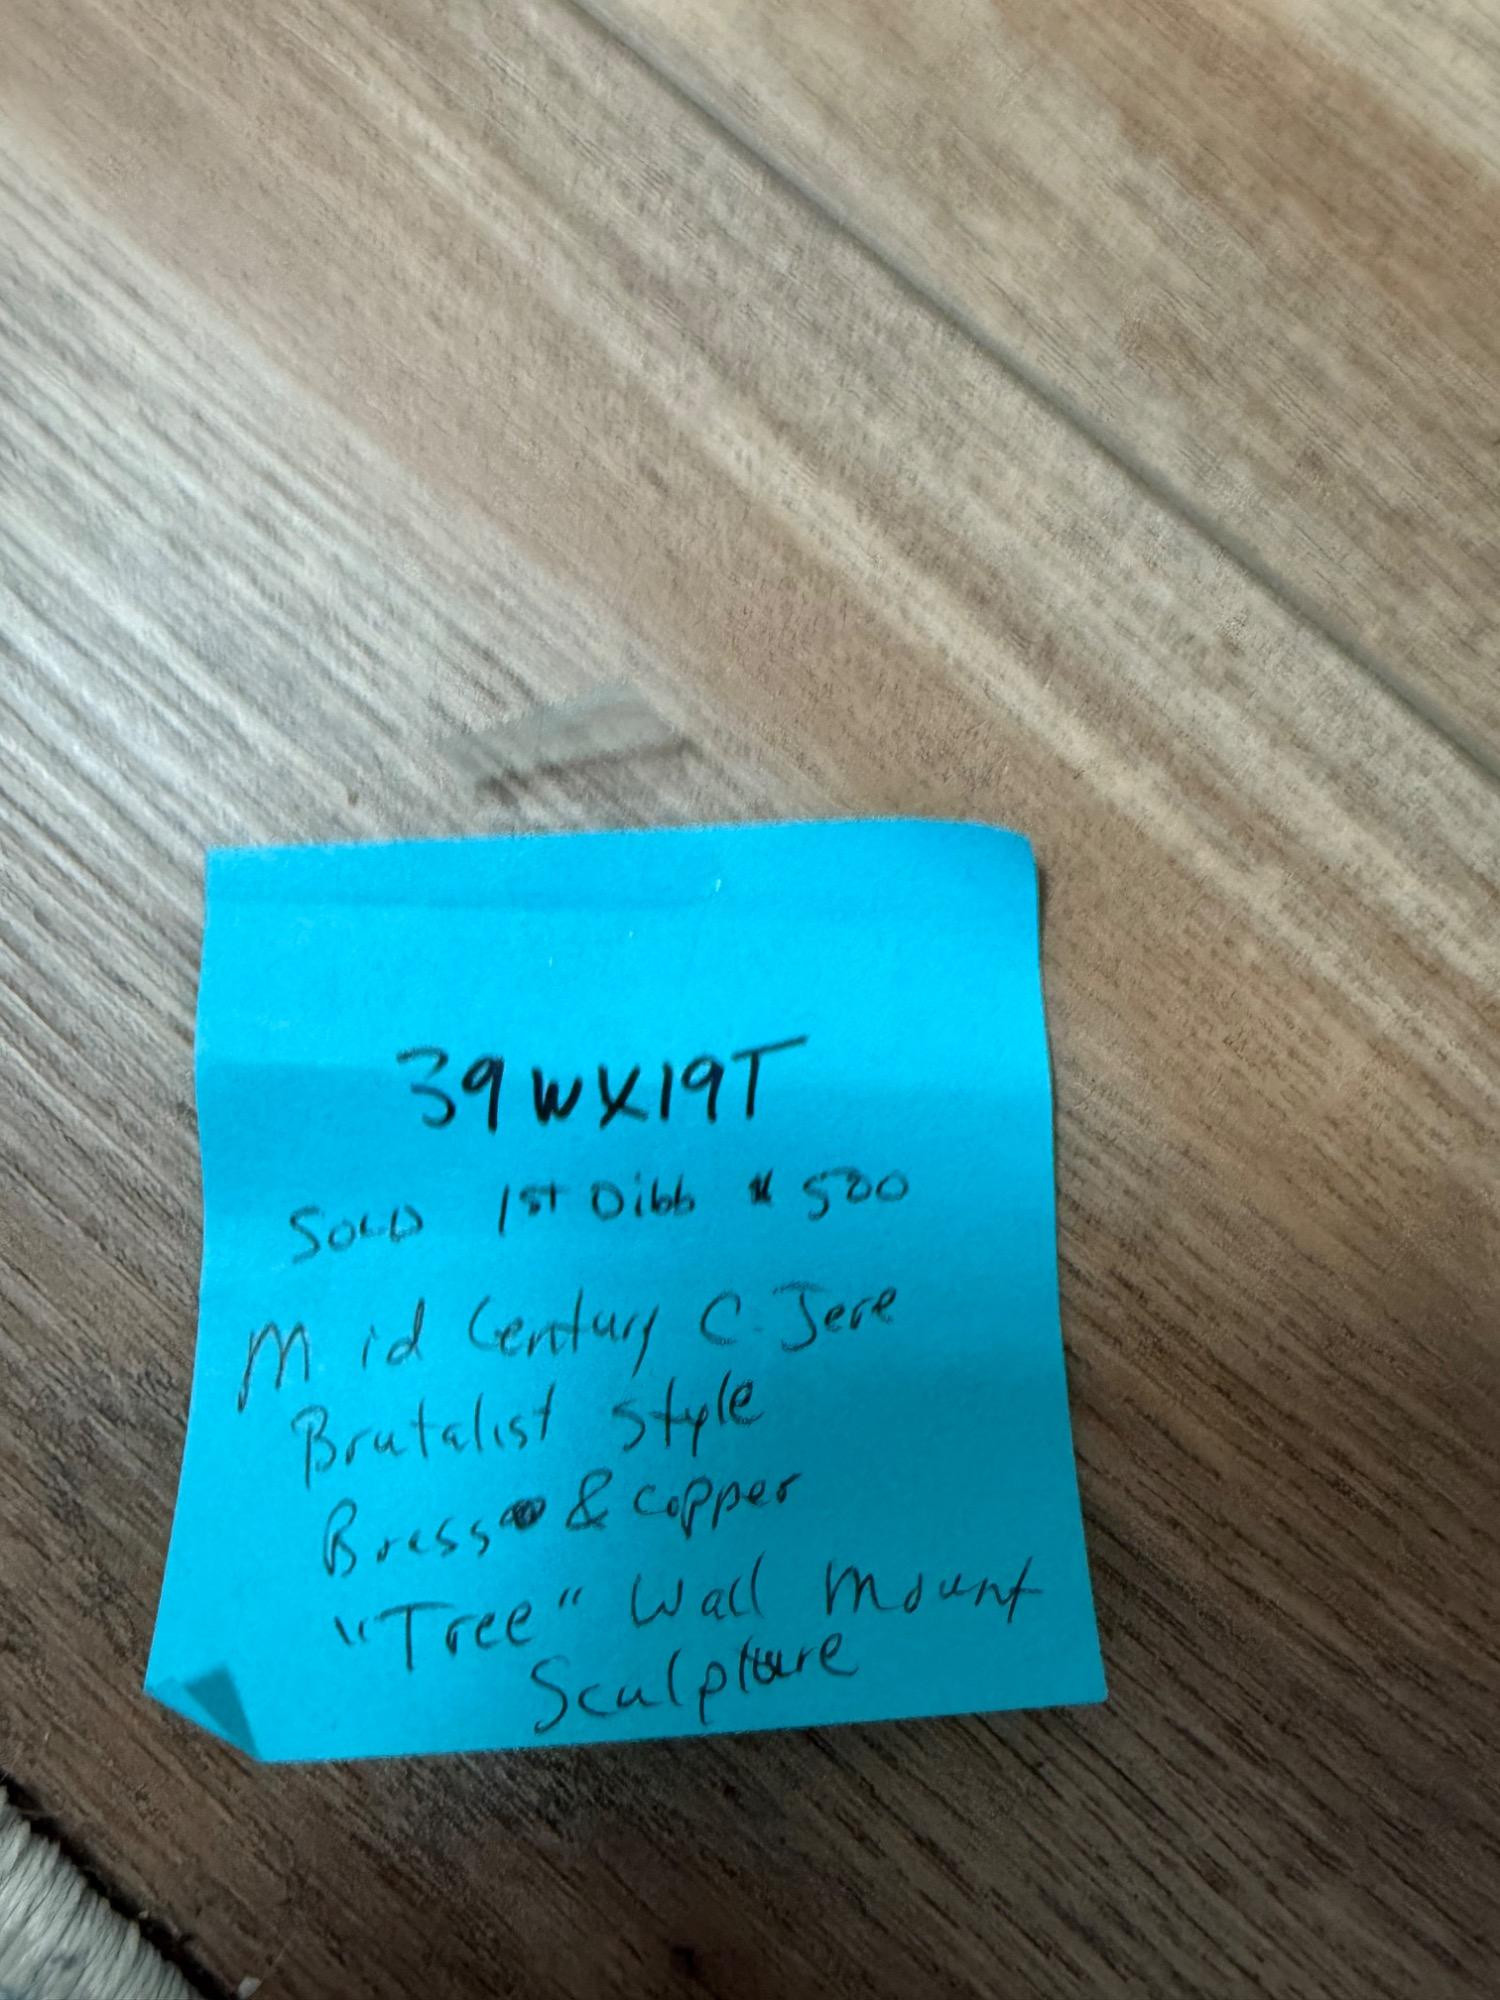 39WX19T
SOLD 1st Dibb 500
Mid Century C. Jere
Brutalist Style
Brass & copper
"Tree" Wall Mount
Sculpture